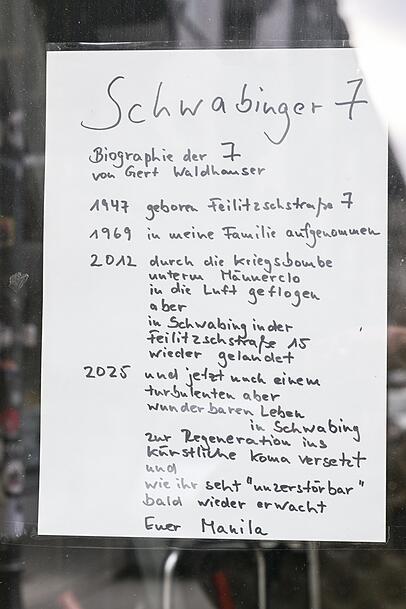 Schwabinger 7
Biographie der 7
von Gert Waldhauser
1947 geboren Feilitzschstraße 7
1969 in meine Familie aufgenommen
2012 durch die Kriegsbombe
unterm Männerclo
in die Luft geflogen
aber
in Schwabing in der
Feilitzschstraße 15
wieder gelandet
2025 und jetzt nach einem
turbulenten aber
wunderbaren Leben
in Schwabing
zur Regeneration ins
künstliche Koma versetzt
und
wie ihr seht "unzerstörbar"
bald wieder erwacht
Euer Manila